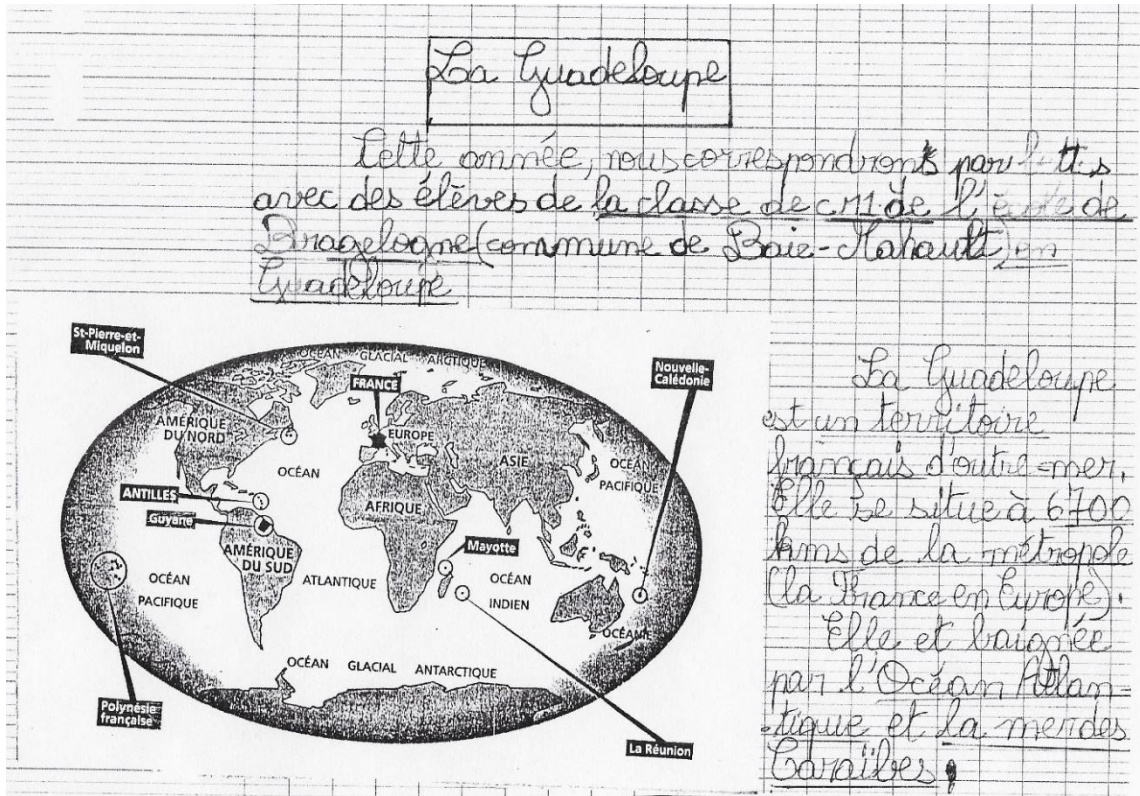 La Guadeloupe
Cette année, nous correspondrons par
avec des élèves de la classe de CM1 de l'école de
Bragelogne (commune de Baie-Mahault) en
Guadeloupe
St-Pierre-et-
Miquelon
OCÉAN GLACIAL ARCTIQUE
FRANCE
Nouvelle-
Calédonie
AMÉRIQUE
DU NORD
EUROPE
ASIE
OCÉAN
PACIFIQUE
OCÉAN
ANTILLES
AFRIQUE
Guyane
Mayotte
AMÉRIQUE
DU SUD
ATLANTIQUE
OCÉAN
PACIFIQUE
OCÉAN
INDIEN
OCÉANIE
OCÉAN GLACIAL ANTARCTIQUE
Polynésie
française
La Réunion
La Guadeloupe
est un territoire
français d'outre-mer.
Elle se situe à 6700
kms de la métropole
(la France en Europe).
Elle et baignée
par l'Océan Atlan-
-tique et la mer des
Caraïbes.